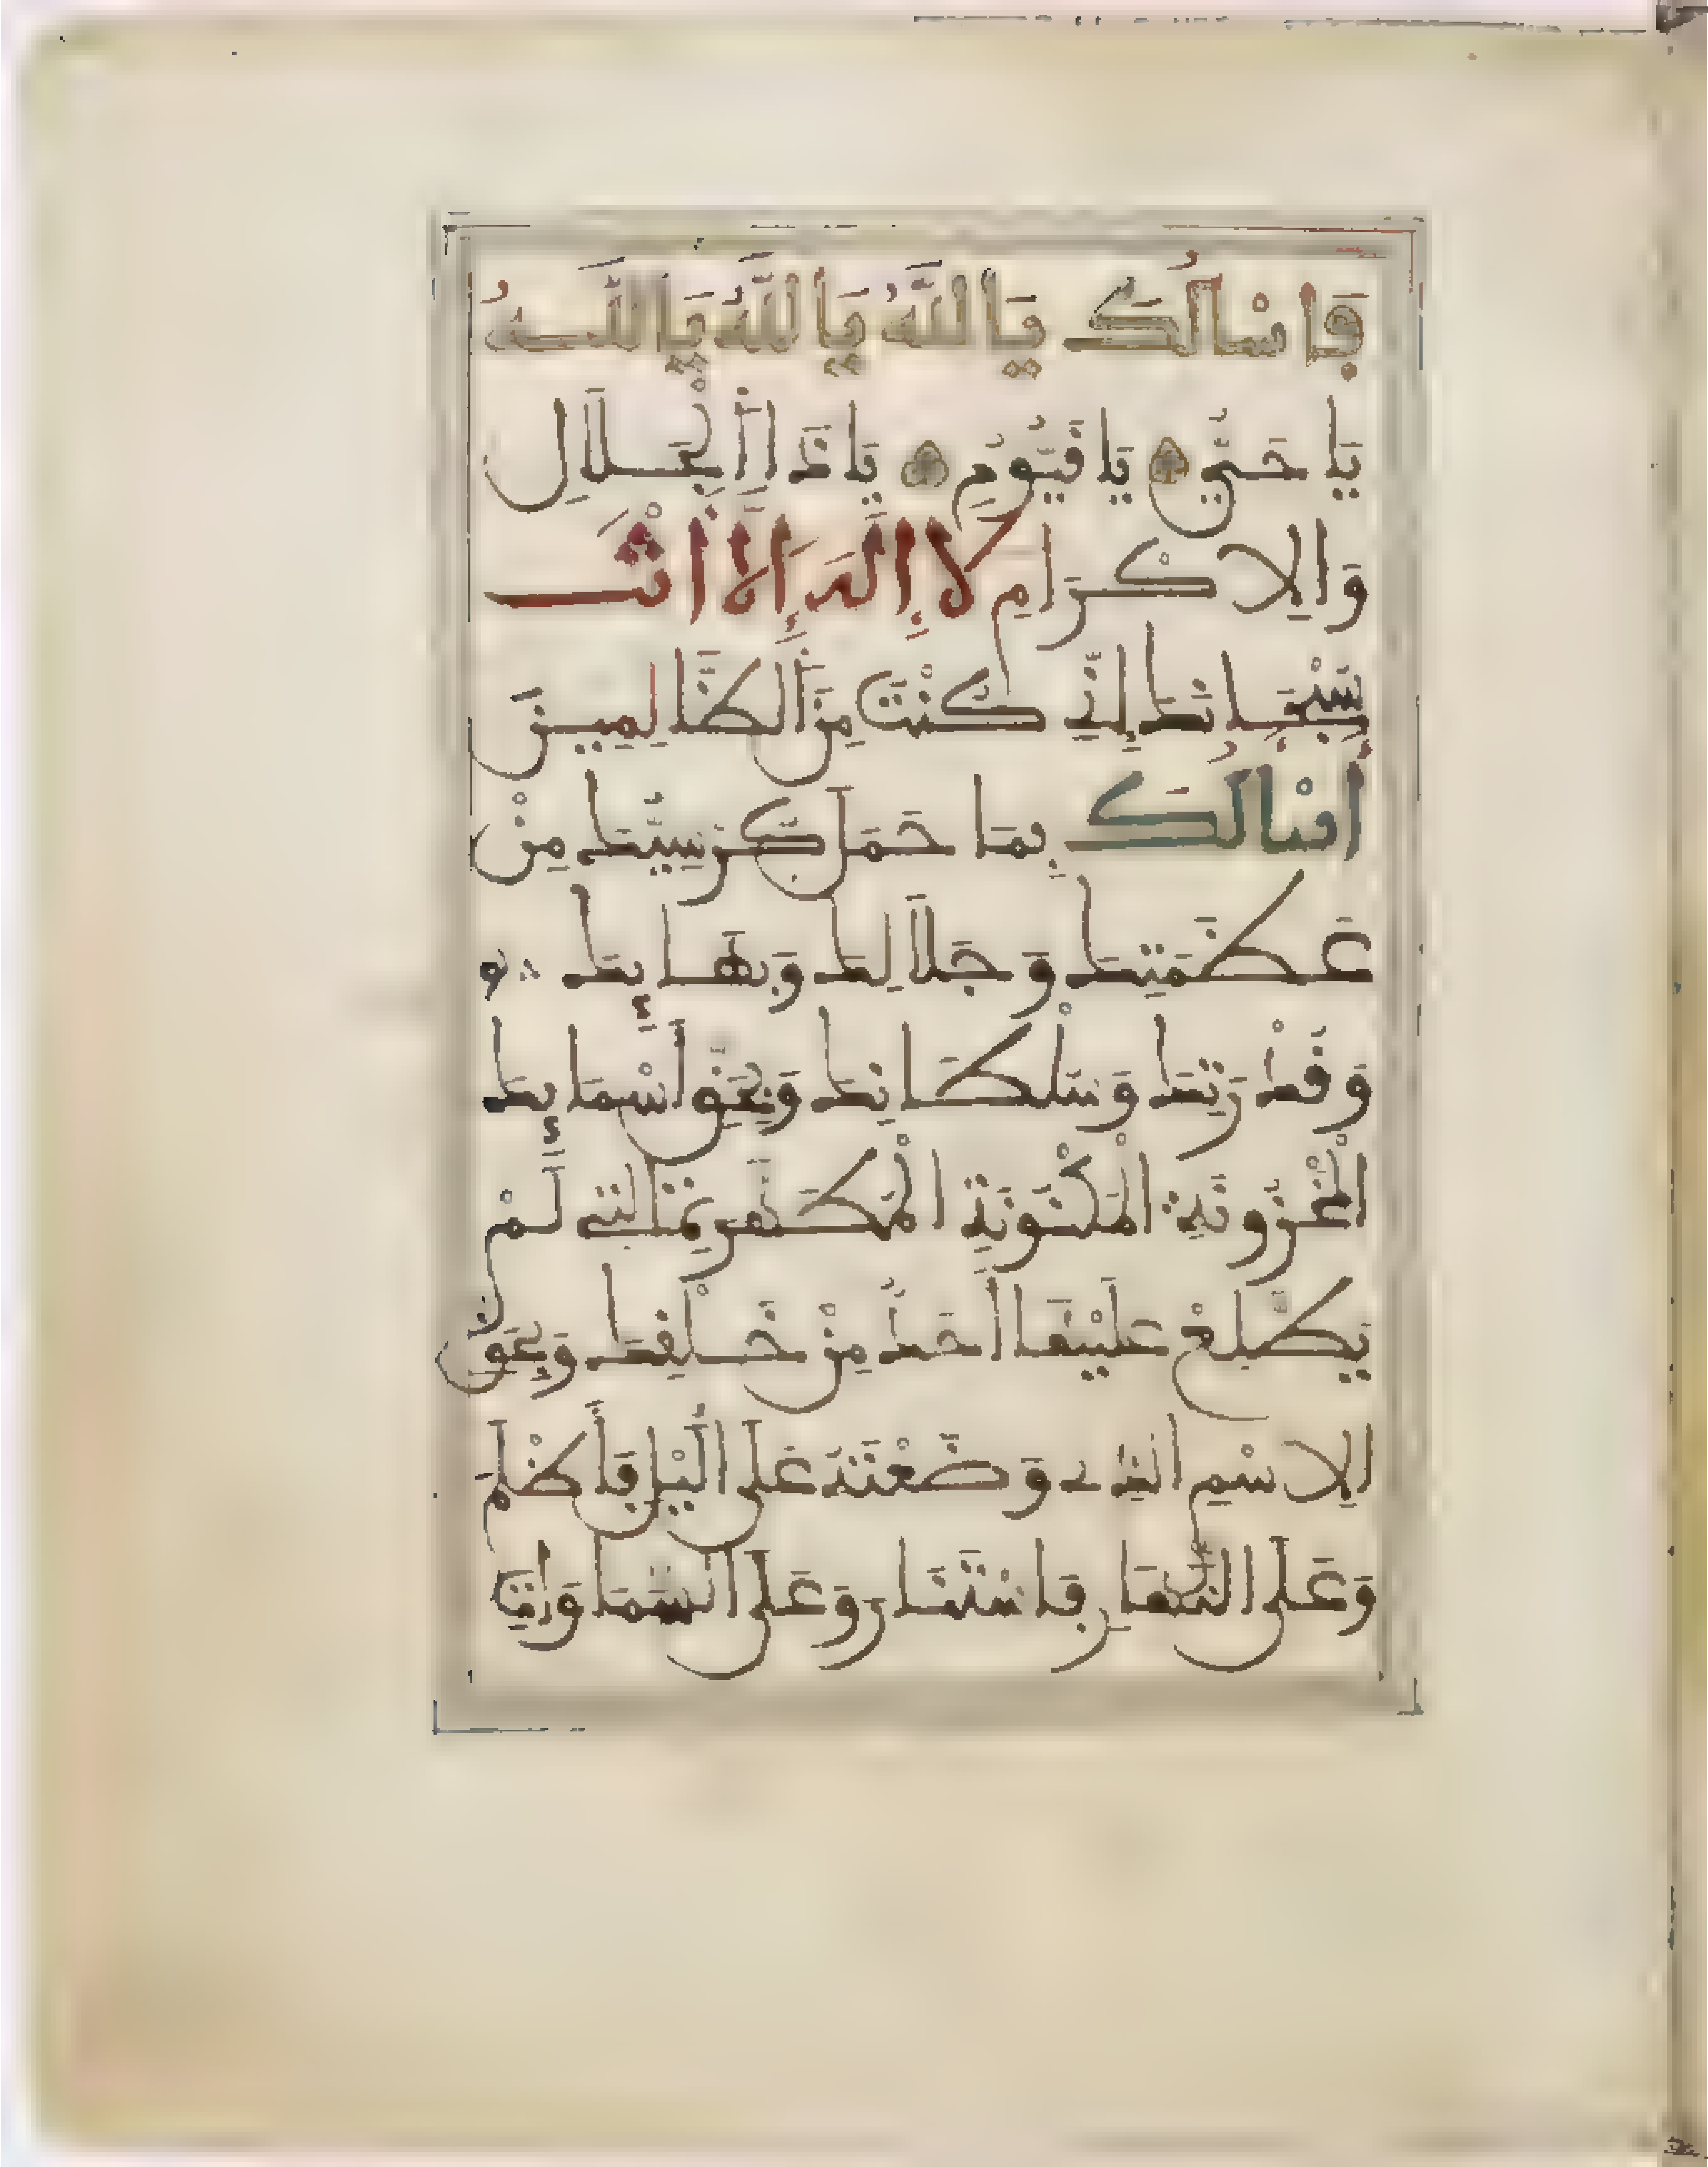 فَأَسْأَلُكَ يَا اللَّهُ يَا اللَّهُ يَا اللَّهُ
يَا حَيُّ يَا قَيُّومُ يَا ذَا الْجَلَالِ
وَالِاكْرَامِ لَا إِلَهَ إِلَّا أَنْتَ
سُبْحَانَكَ إِنِّي كُنْتُ مِنَ الظَّالِمِينَ
أَسْأَلُكَ بِمَا حَمَلَ كُرْسِيُّكَ مِنْ
عَظَمَتِكَ وَجَلَالِكَ وَبَهَائِكَ
وَقُدْرَتِكَ وَسُلْطَانِكَ وَبِحَقِّ أَسْمَائِكَ
الْمَخْزُونَةِ الْمَكْنُونَةِ الْمُطَهَّرَةِ الَّتِي لَمْ
يَطَّلِعْ عَلَيْهَا أَحَدٌ مِنْ خَلْقِكَ وَبِحَقِّ
الِاسْمِ الَّذِي وَضَعْتَهُ عَلَى الَّيْلِ فَأَظْلَمَ
وَعَلَى النَّهَارِ فَاسْتَنَارَ وَعَلَى السَّمَاوَاتِ